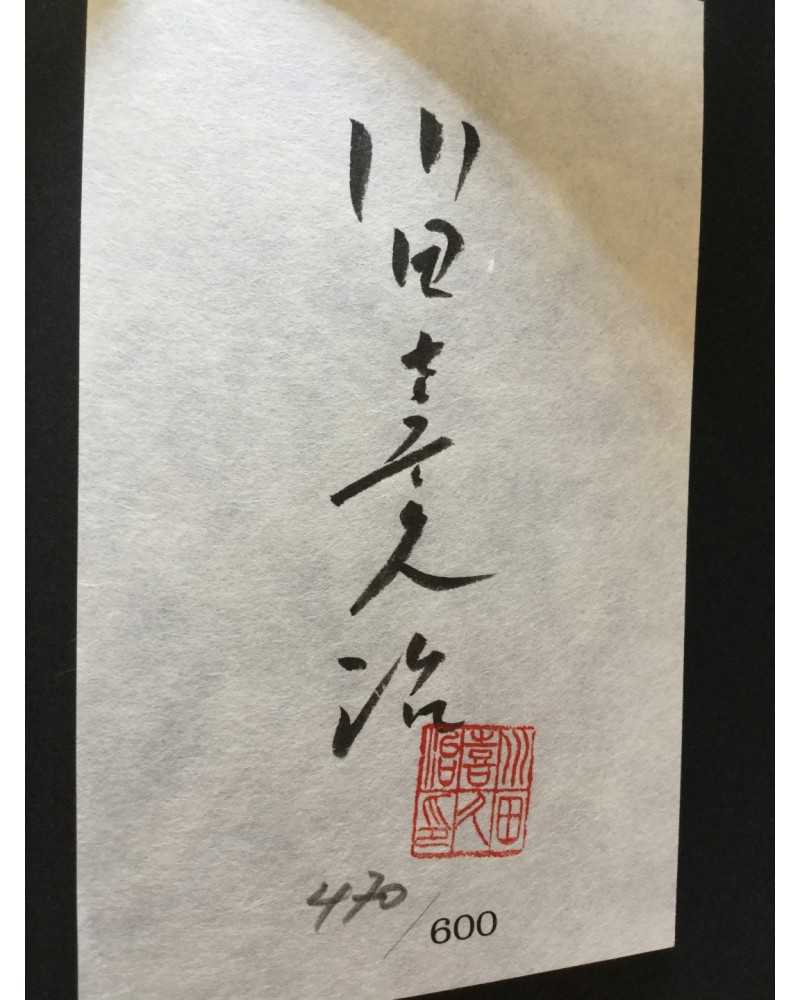 川田喜久治
川田
喜久
治印
470/600